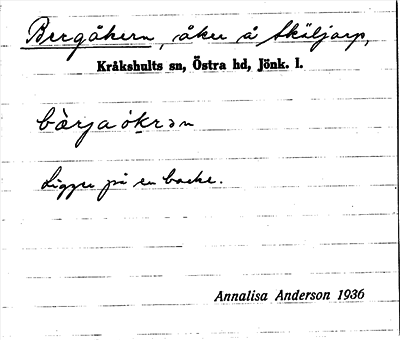 Bergåkern, åker å Sköljarp,
Kråkshults sn, Östra hd, Jönk. l.
bærja ókrən
Ligger på en backe.
Annalisa Anderson 1936